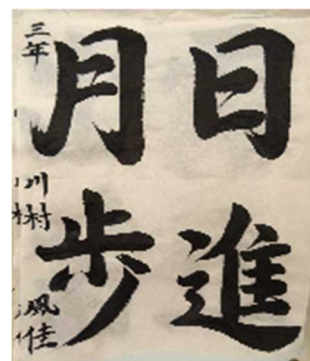 日進
月歩
三年 川村 風佳